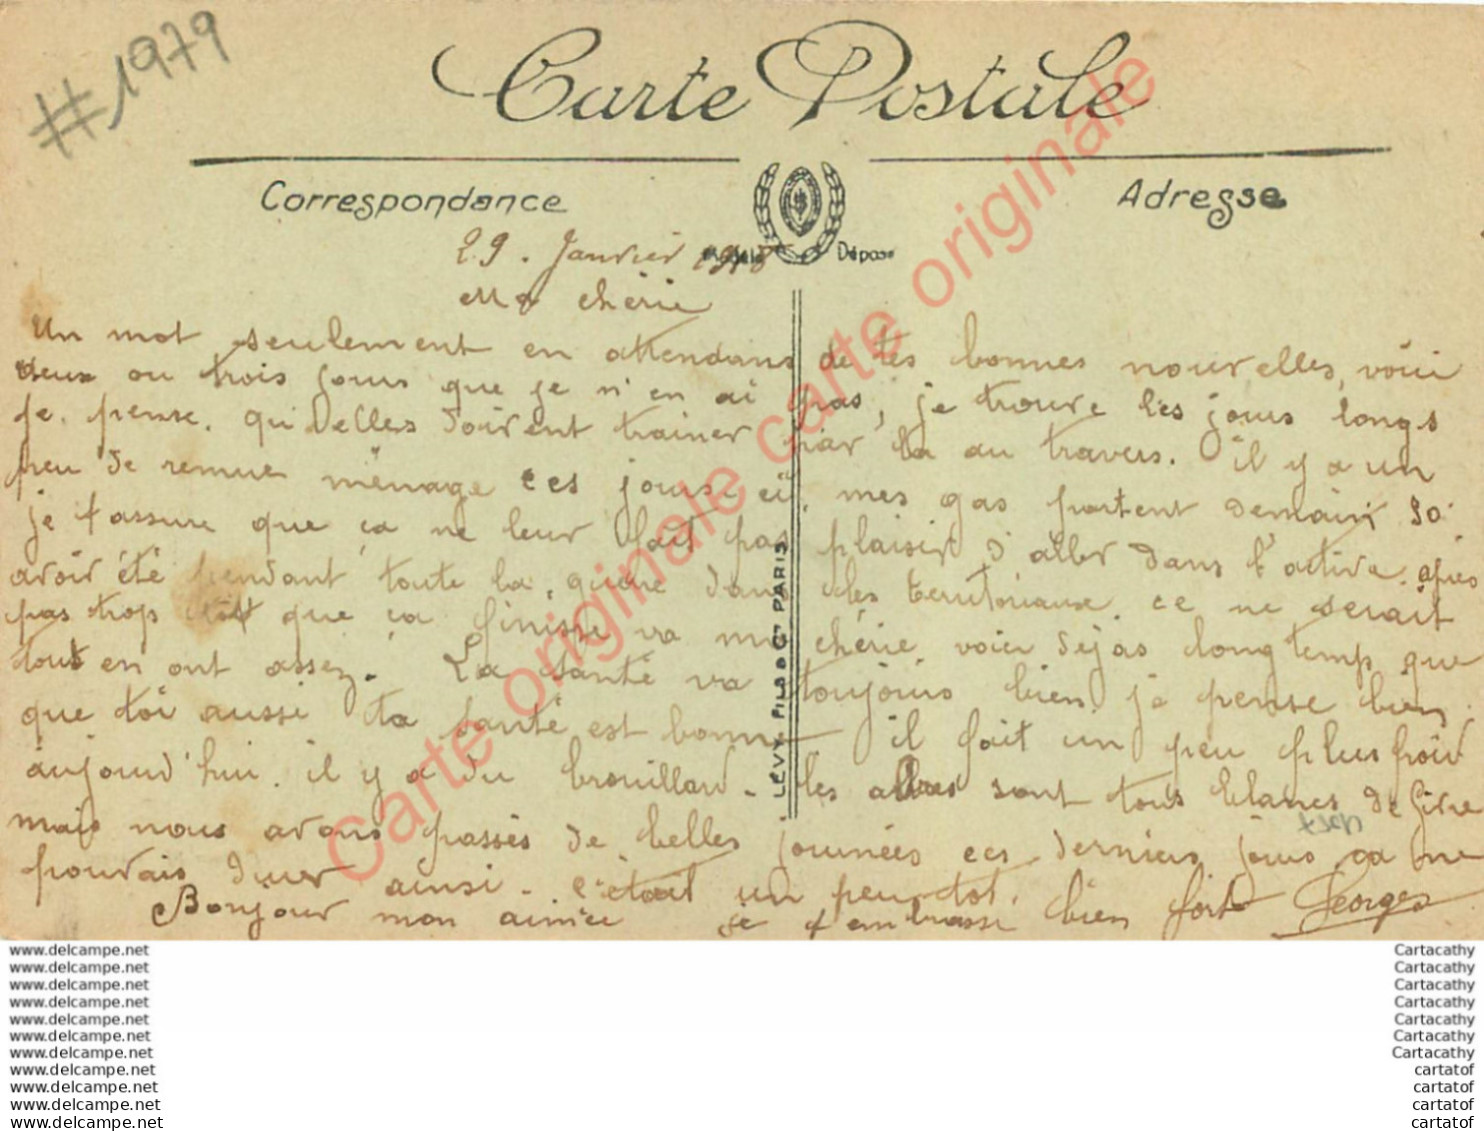 #1979
Carte Postale
Correspondance
Adresse
Modèle Déposé
29. Janvier 1918
Ma chérie
Un mot seulement en attendans de tes bonnes nouvelles, voici
deux ou trois jours que je n'en ai pas, je trouve les jours longs
je pense. qu'Delles doivent trainer par la au travers. il y a un
peu de remue ménage ces jours ci, mes gas partent demain so
je t assure que ça ne leur fait pas plaisir d'aller dans l'active. après
avoir été pendant toute la guerre dans des territoriaux. ce ne serait
pas trop tôt que ça finisse va ma chérie voici dejas longtemp que
tous en ont assez. La santé va toujours bien, je pense bien
que toi aussi ta santé est bonne il fait un peu plus froid
aujourd'hui. il y a du brouillard. les arbres sont tous blancs de givre
mais nous avons passés de belles journées ces derniers jours ça ne
pouvais durer ainsi. c'étail un peu tot.
Bonjour mon aimée je t'embrasse bien fort Georges
LÉVY FILS & Cie PARIS
Carte originale carte originale
Carte originale
www.delcampe.net
www.delcampe.net
www.delcampe.net
www.delcampe.net
www.delcampe.net
www.delcampe.net
www.delcampe.net
www.delcampe.net
www.delcampe.net
www.delcampe.net
www.delcampe.net
Cartacathy
Cartacathy
Cartacathy
Cartacathy
Cartacathy
Cartacathy
Cartacathy
cartatof
cartatof
cartatof
cartatof